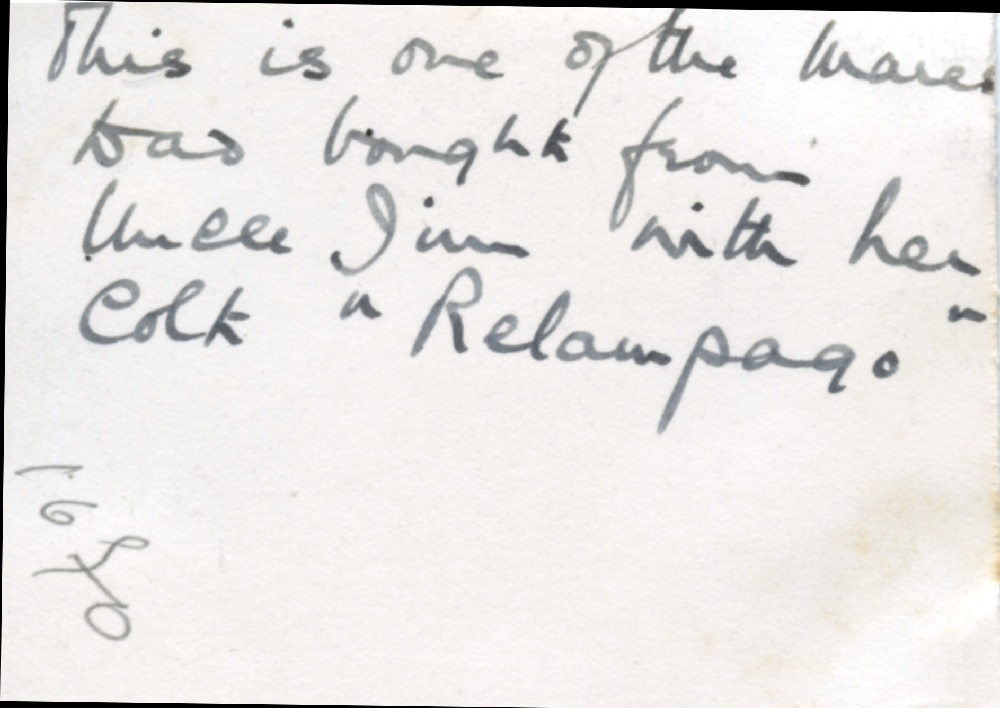 This is one of the mares
Dad bought from
Uncle Jim with her
Colt "Relampago"